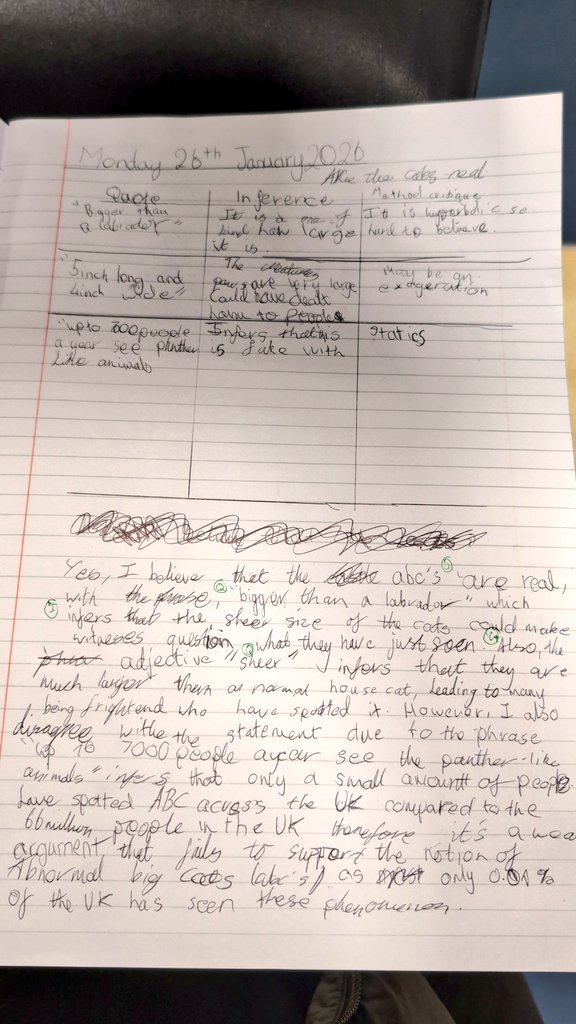 Monday 26th January 2026
Are the cabs real
Quote
Inference
Method critique
"Bigger than
a labrador"
It is a one of
kind how large
it is.
It is hyperbolic so
hard to believe.
"5inch long and
4inch wide"
The creatures
paws are very large
Could have dealt
harm to people
May be an
exageration
"up to 7000people
a year see panther
Like animals
Infers that is
is fake with
Statics
Yes, I believe that the abc's are real,
with the phrase, "bigger than a labrador" which
infers that the sheer size of the cats could make
witneses question what they have just seen. Also, the
adjective "sheer" infers that they are
much larger them a normal house cat, leading to many
being frightend who have spotted it. However, I also
disagree withe the statement due to the phrase
"up to 7000 people a year see the panther-like
animals" infers that only a small amount of people
have spotted ABC across the UK compared to the
66 million people in the UK therefore it's a weak
argument that, fails to support the notion of
Abnormal big cats (abc's) as only 0.01%
of the UK has seen these phenomenon.